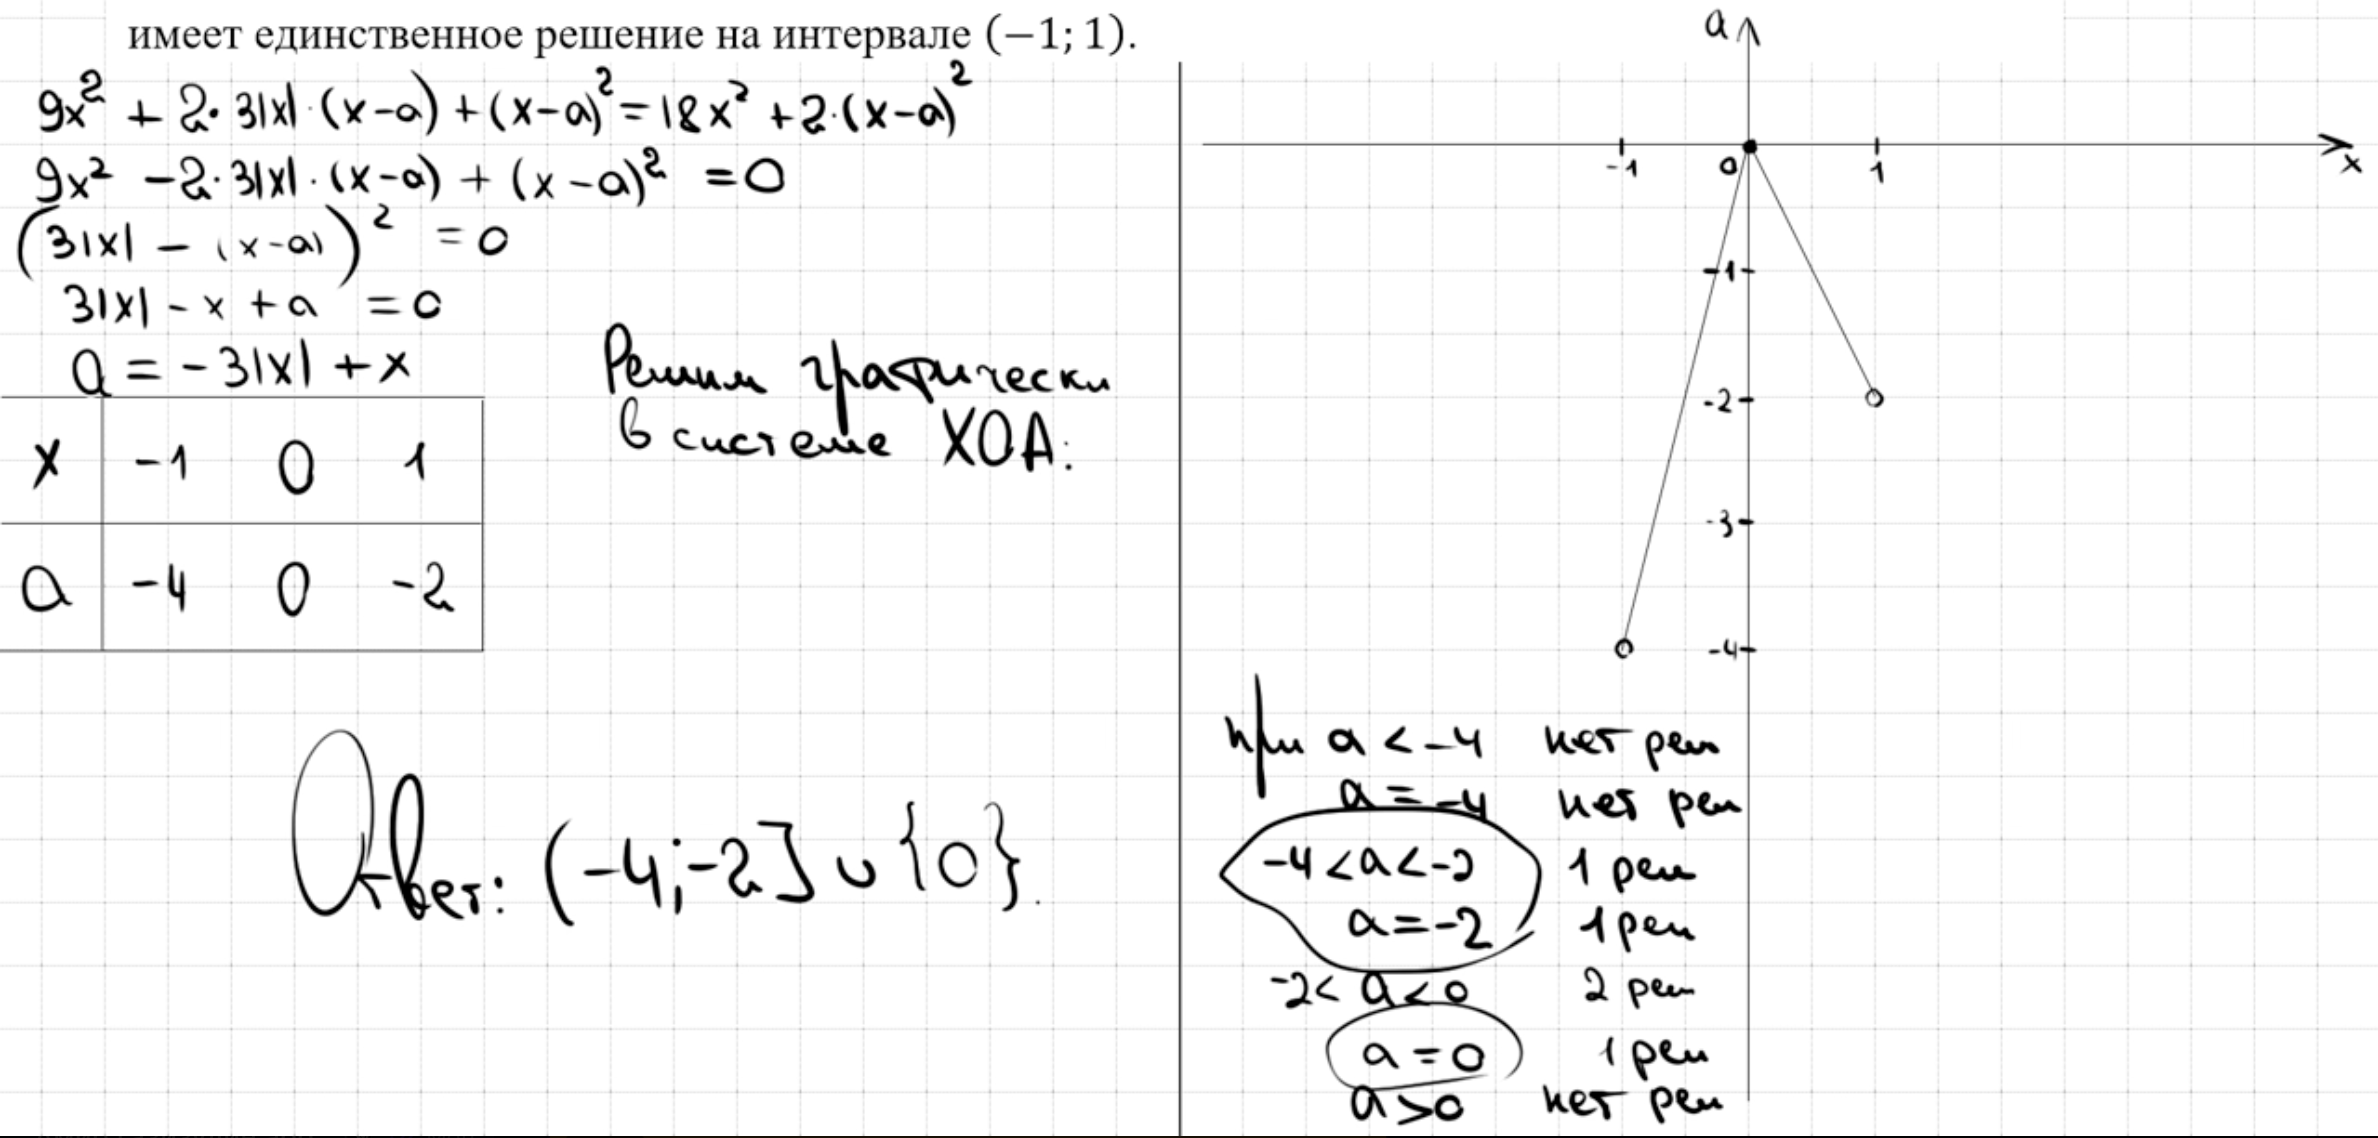 имеет единственное решение на интервале (−1; 1).
9x² + 2·3|x|·(x-a) + (x-a)² = 18x² + 2·(x-a)²
9x² - 2·3|x|·(x-a) + (x-a)² = 0
(3|x| - (x-a))² = 0
3|x| - x + a = 0
a = -3|x| + x
Решим графически
в системе XOA:
x -1 0 1
a -4 0 -2
Ответ: (-4; -2] ∪ {0}.
a
-1 0 1 x
-1
-2
-3
-4
при a < -4 нет реш
a = -4 нет реш
-4 < a < -2 1 реш
a = -2 1 реш
-2 < a < 0 2 реш
a = 0 1 реш
a > 0 нет реш